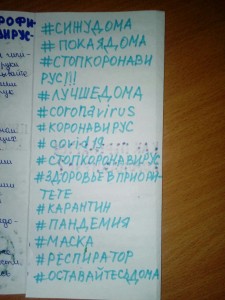 РОФИ-
ВИРУС-
#СИЖУДОМА
#ПОКАЯДОМА
#СТОПКОРОНАВИ
РУС!!!
#ЛУЧШЕДОМА
#coronavirus
#КОРОНАВИРУС
#covid19
#СТОПКОРОНАВИРУС
#ЗДОРОВЬЕВПРИОРИ
ТЕТЕ
#КАРАНТИН
#ПАНДЕМИЯ
#МАСКА
#РЕСПИРАТОР
#ОСТАВАЙТЕСЬДОМА